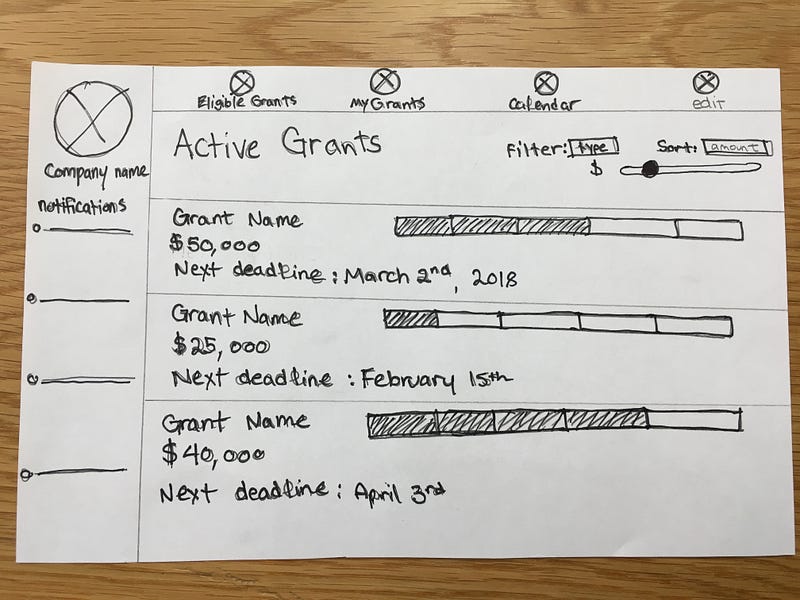 Eligible Grants
My Grants
Calendar
edit
Company name
notifications
Active Grants
Filter: type
Sort: amount
$
Grant Name
$50,000
Next deadline: March 2nd, 2018
Grant Name
$25,000
Next deadline: February 15th
Grant Name
$40,000
Next deadline: April 3rd